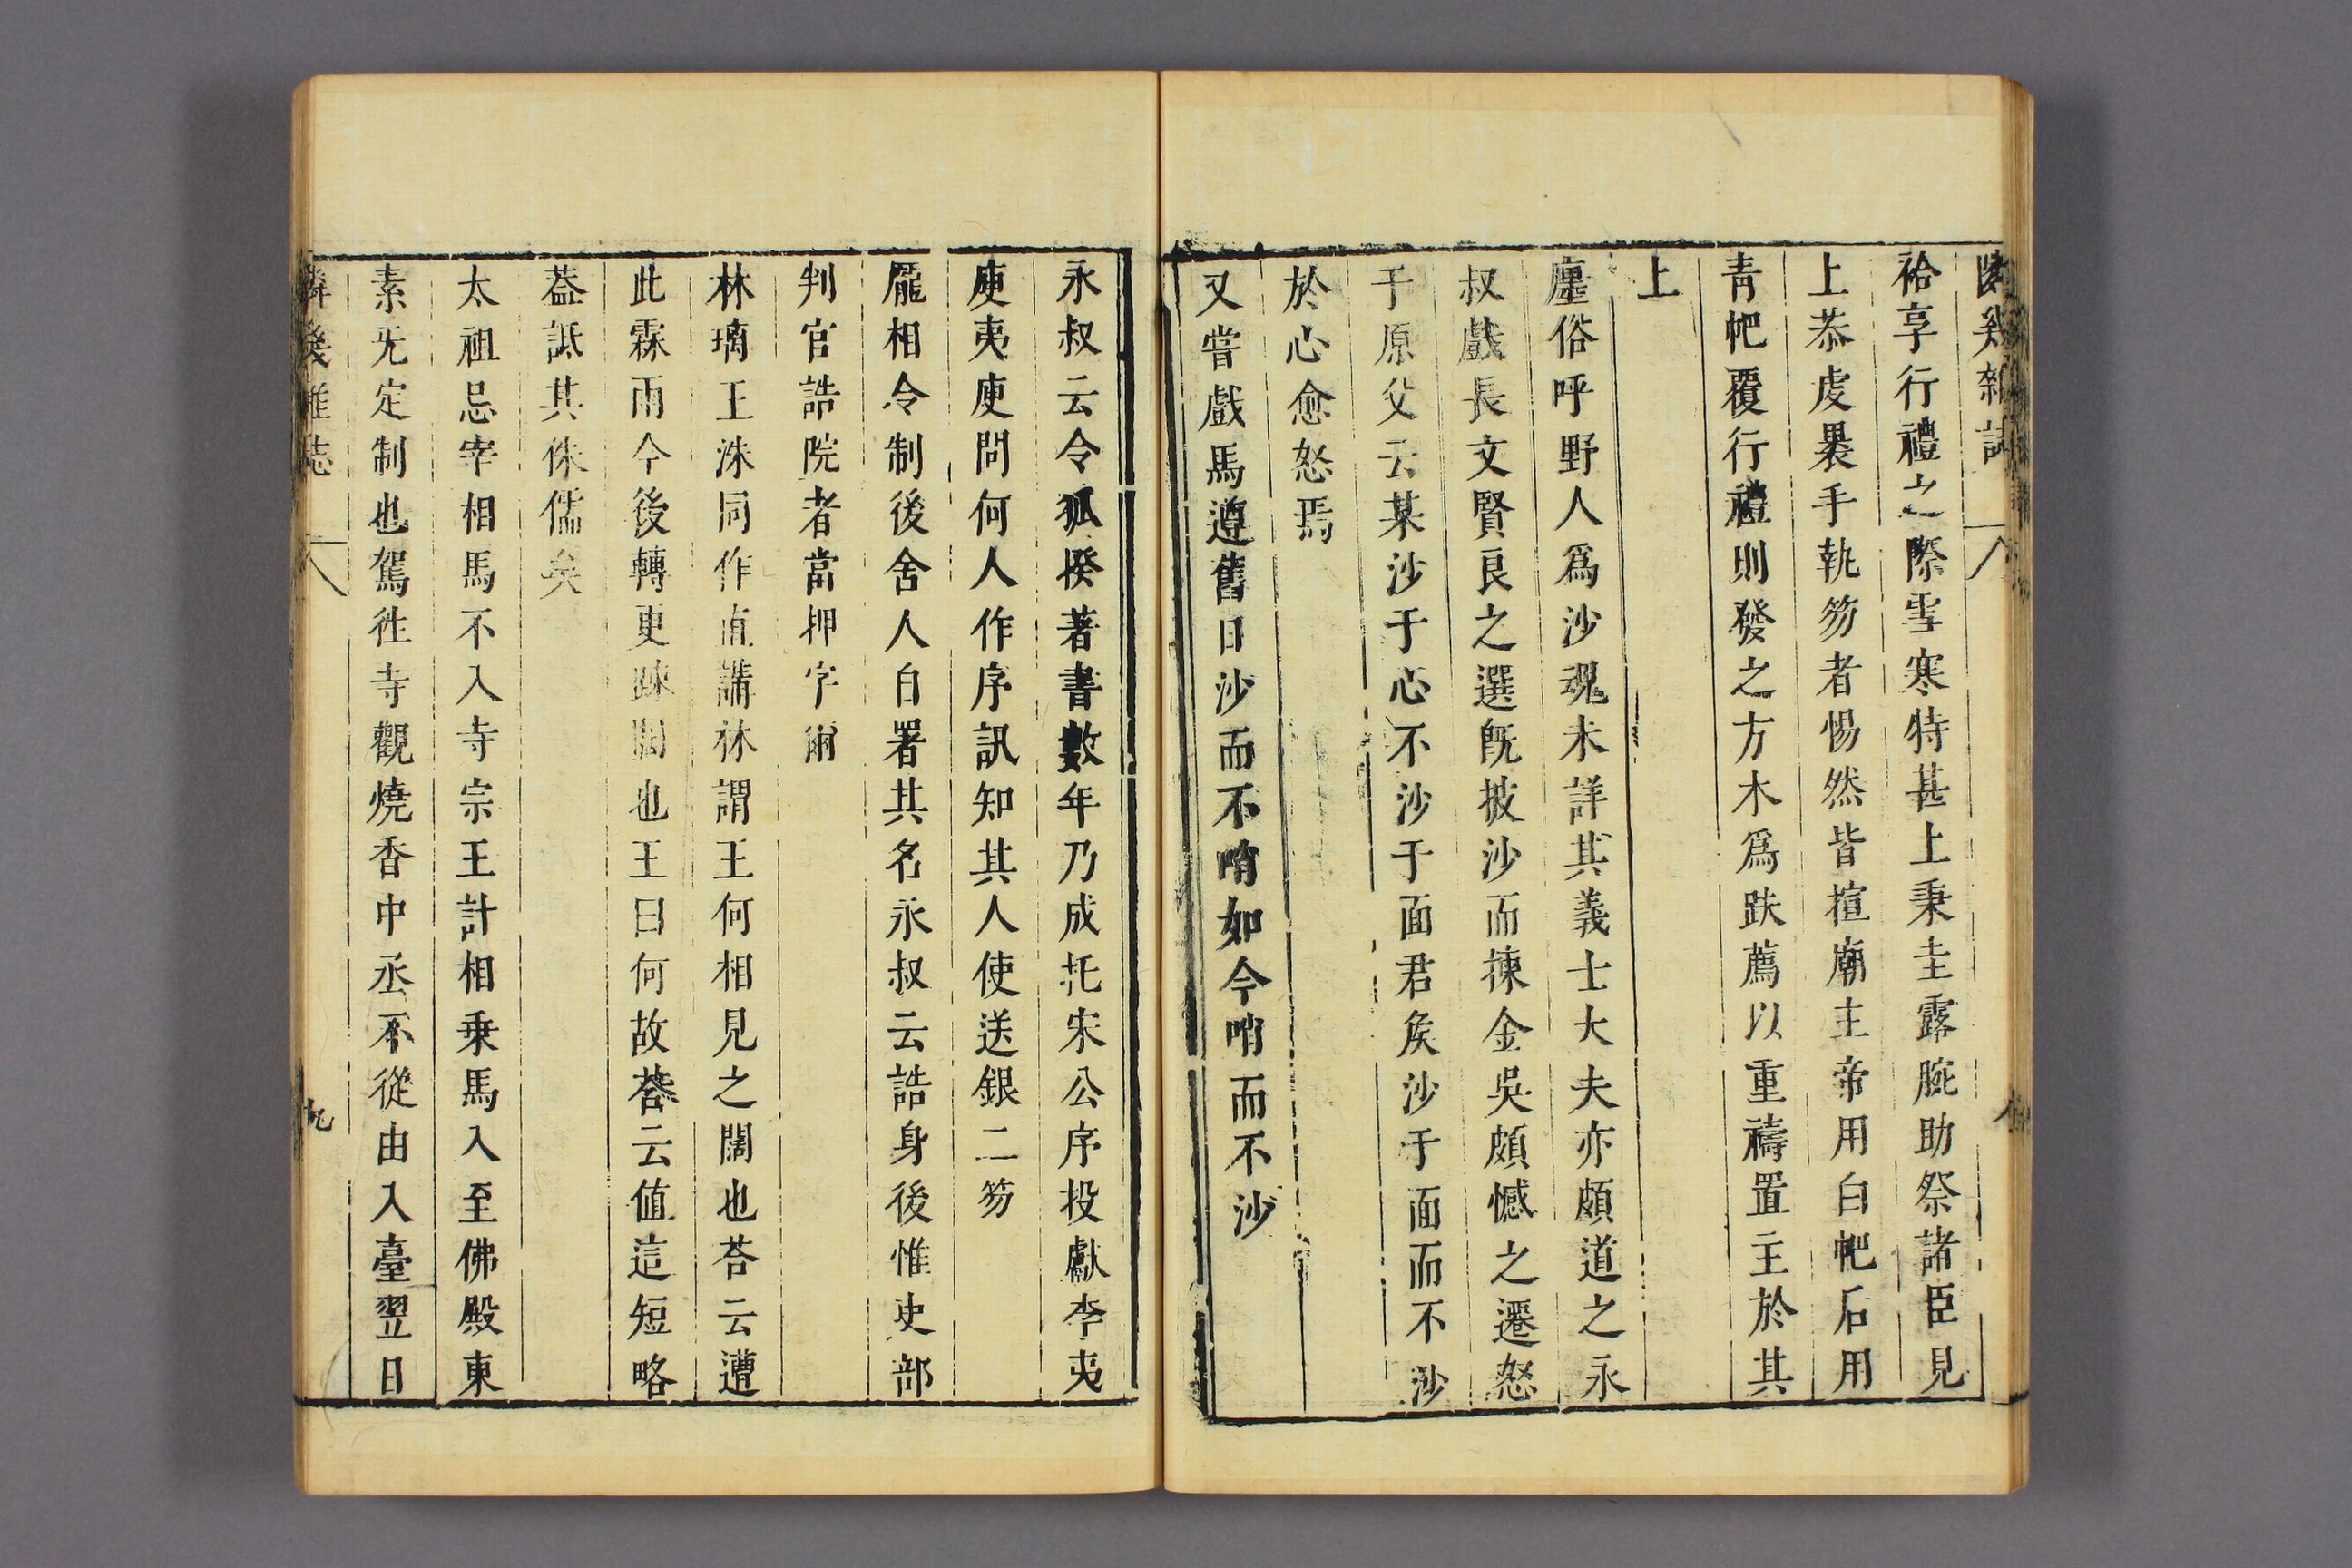 隣幾雜誌
祫享行禮之際雪寒特甚上秉圭露腕助祭諸臣見
上恭虔褁手執笏者惕然皆揎廟主帝用白帊后用
青帊覆行禮則發之方木爲趺薦以重禱置主於其
上
廛俗呼野人爲沙魂未詳其義士大夫亦頗道之永
叔戲長文賢良之選旣披沙而揀金吳頗憾之遷怒
于原父云某沙于心不沙于面君矦沙于面而不沙
於心愈怒焉
又嘗戲馬遵舊日沙而不哨如今哨而不沙
永叔云令狐揆著書數年乃成托宋公序投獻李夷
庚夷庚問何人作序訊知其人使送銀二笏
龎相令制後舍人自署其名永叔云誥身後惟吏部
判官誥院者當押字爾
林瑀王洙同作直講林謂王何相見之闊也荅云遭
此霖雨今後轉更踈闊也王曰何故荅云値這短晷
葢詆其侏儒矣
太祖忌宰相馬不入寺宗王計相乗馬入至佛殿東
素旡定制也駕徃寺觀燒香中丞不從由入臺翌日
隣幾雜誌
九